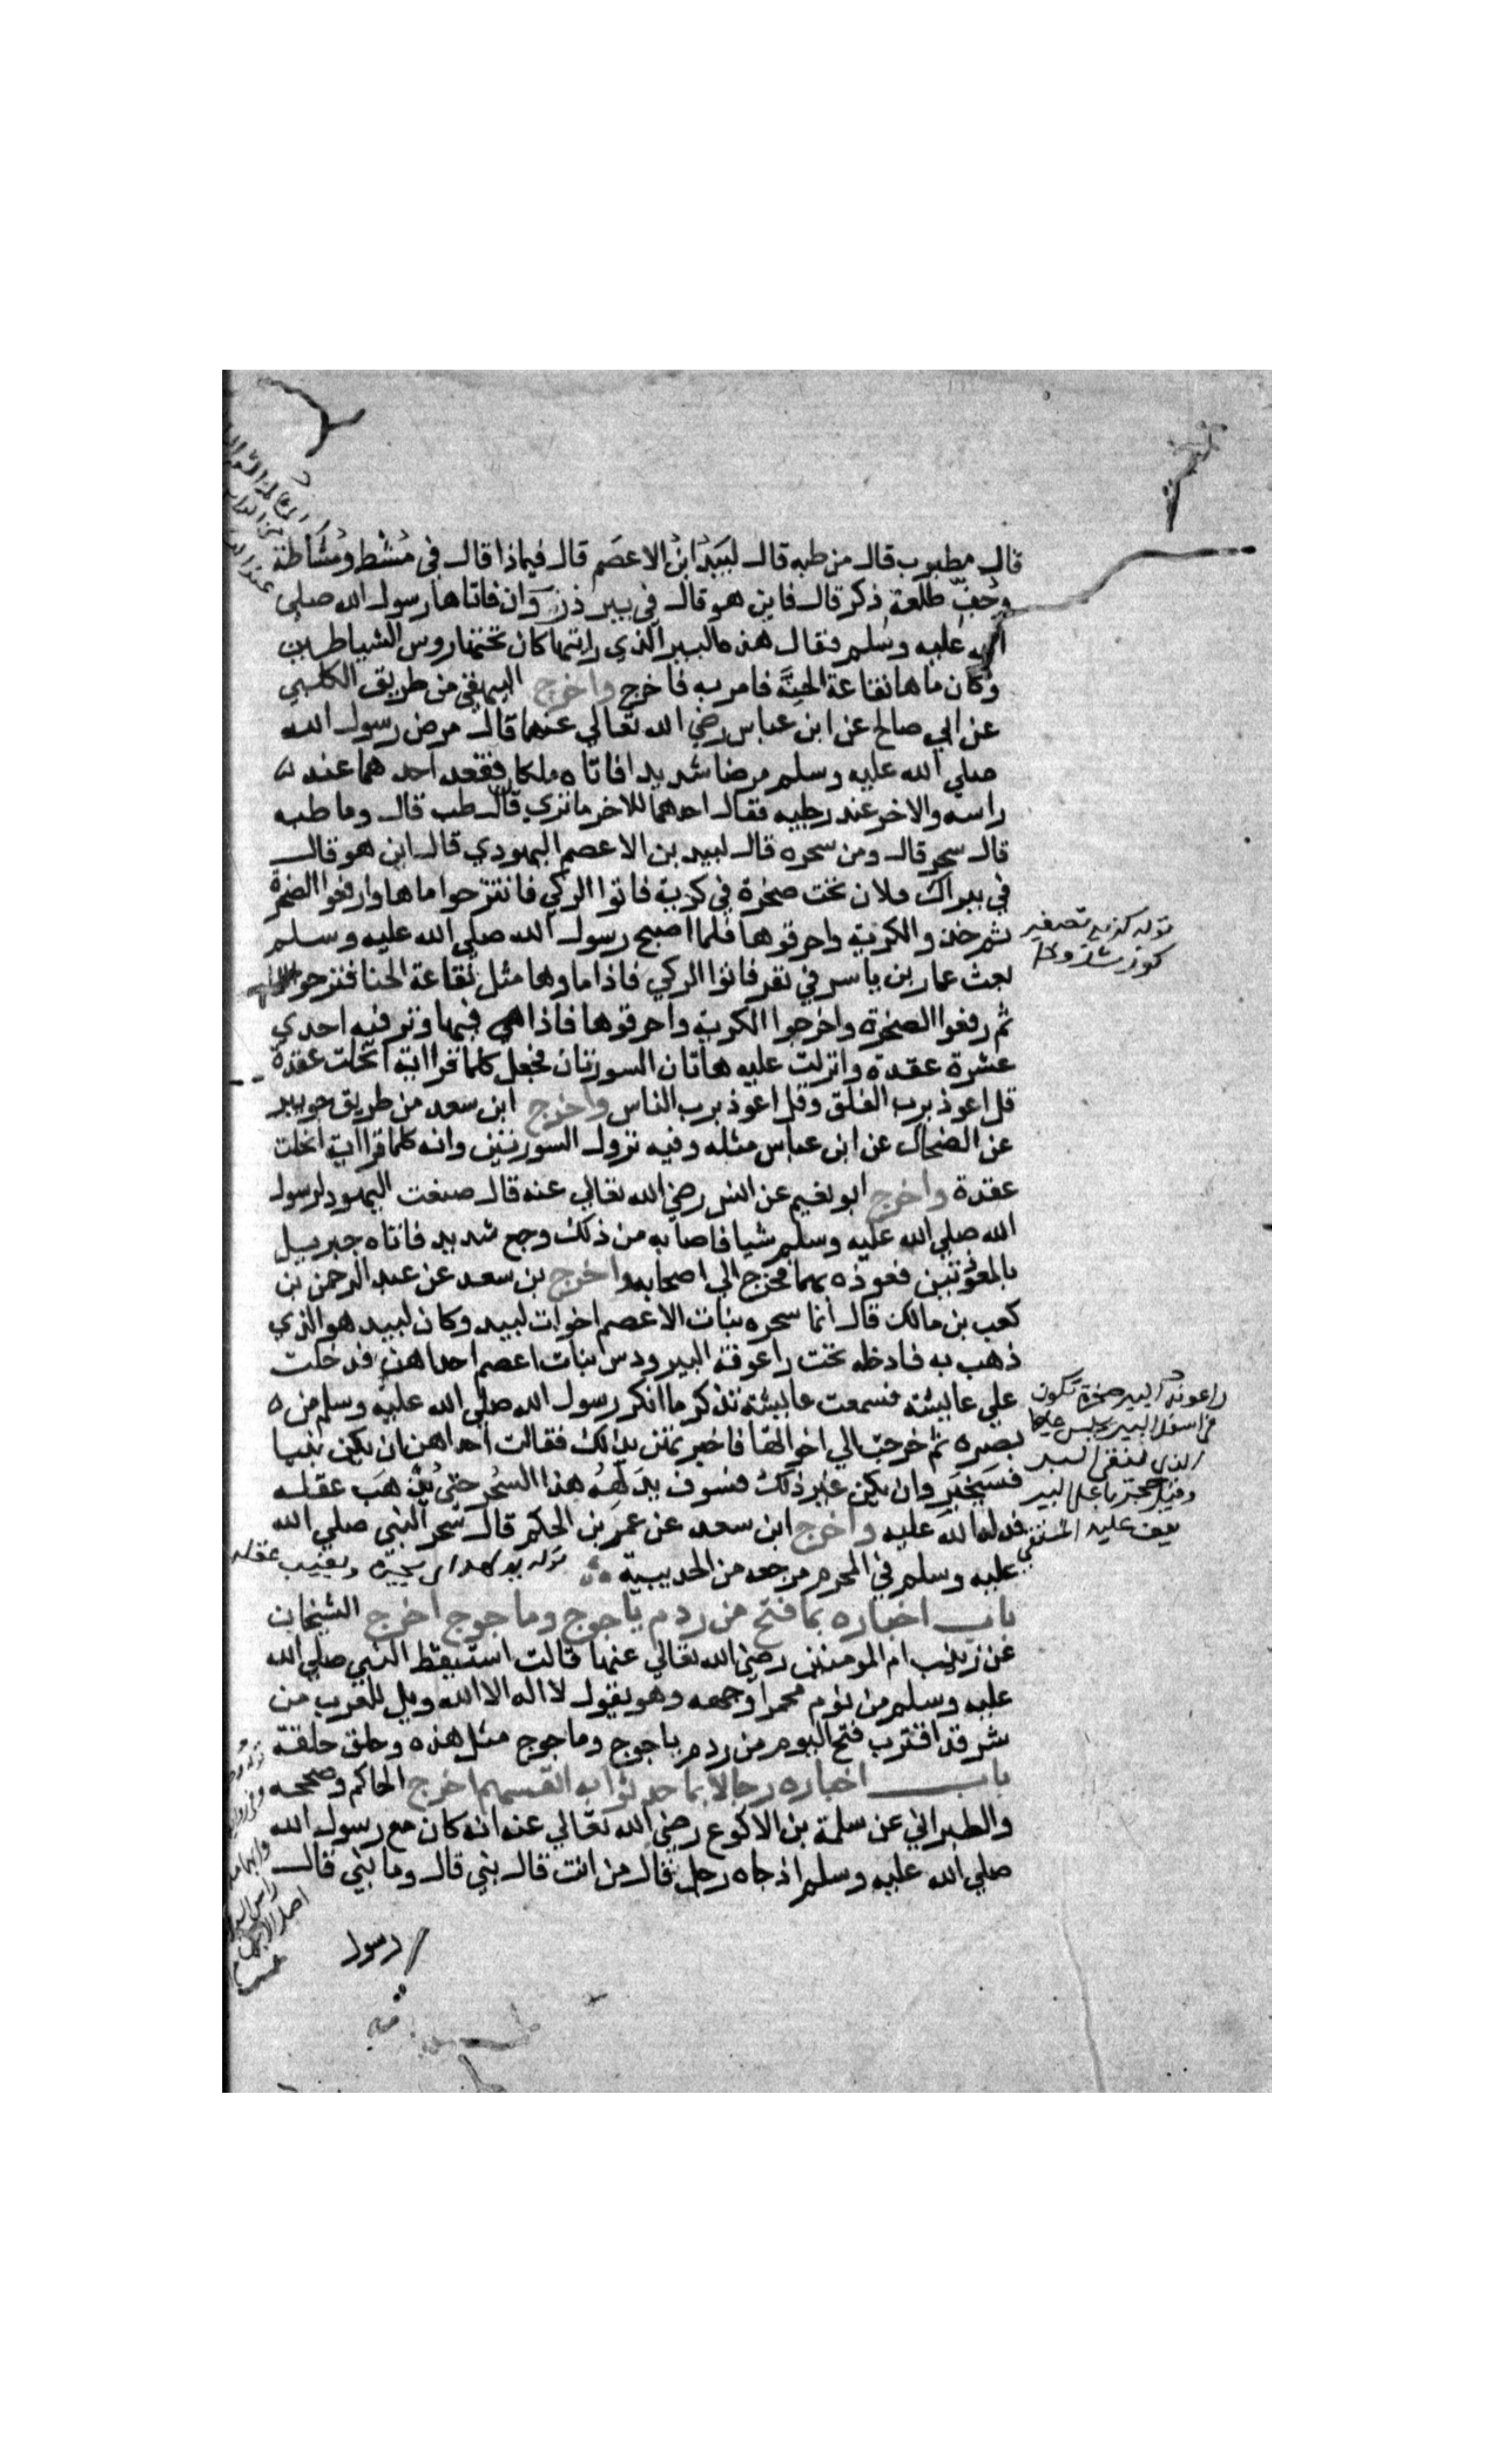 قال مطبوب قال من طبه قال لبيد ابن الاعصم قال فيماذا قال في مشط ومشاطة
وجف طلعة ذكر قال فاين هو قال في بير ذروان فاتاها رسول الله صلى
الله عليه وسلم فقال هذه البير الذي رايتها كان تختها روس الشياطين
وكان ماها نقاعة الحنَّة فامر به فاخرج واخرج البيهقي من طريق الكلبي
عن ابي صالح عن ابن عباس رضي الله تعالي عنهما قال مرض رسول الله
صلي الله عليه وسلم مرضا شديدا فاتاه ملكان فقعد احدهما عند
راسه والاخر عند رجليه فقال احدهما للاخر ما تري قال طب قال وما طبه
قال سحر قال ومن سحره قال لبيد بن الاعصم اليهودي قال اين هو قال
في بير ال فلان تحت صخرة في كرية فاتوا الركي فانتزحوا ماها وارفعوا الصخرة
ثم خذو الكرية واحرقوها فلما اصبح رسول الله صلي الله عليه وسلم
بعث عمار بن ياسر في نفر فاتوا الركي فاذا ماوها مثل نقاعة الحنا فنزحوا الماء
ثم رفعوا الصخرة واخرجوا الكرية واحرقوها فاذا هي فيها وتر فيه احدي
عشرة عقدة وانزلت عليه هاتان السورتان فجعل كلما قرا اية انحلت عقدة
قل اعوذ برب الفلق وقل اعوذ برب الناس واخرج ابن سعد من طريق جويبر
عن الضحاك عن ابن عباس مثله وفيه نزول السورتين وانه كلما قرا اية انحلت
عقدة واخرج ابو نعيم عن انس رضي الله تعالي عنه قال صنعت اليهود لرسول
الله صلي الله عليه وسلم شيا فاصابه من ذلك وجع شديد فاتاه جبريل
بالمعوذتين فعوذه بهما فخرج الي اصحابه واخرج بن سعد عن عبد الرحمن بن
كعب بن مالك قال انما سحره بنات الاعصم اخوات لبيد وكان لبيد هو الذي
ذهب به فادخله تحت راعوفة البير ودس بنات اعصم احداهن فدخلت
علي عايشة فسمعت عايشة تذكر ما انكر رسول الله صلي الله عليه وسلم من
بصره ثم خرجت الي اخواتها فاخبرتهن بذلك فقالت احداهن ان يكن نبيا
فسيخبر وان يكن غير ذلك فسوف يدلهه هذا السحر حتى يذهب عقله
فدله الله عليه واخرج ابن سعد عن عمر بن الحكم قال سحر النبي صلي الله
عليه وسلم في المحرم مرجعه من الحديبية
قوله يدلهه اي يحيره ويغيب عقله
باب اخباره بما فتح من ردم ياجوج وماجوج اخرج الشيخان
عن زينب ام المومنين رضي الله تعالي عنها قالت استيقظ النبي صلي الله
عليه وسلم من نوم محمرا وجهه وهو يقول لا اله الا الله ويل للعرب من
شر قد اقترب فتح اليوم من ردم ياجوج وماجوج مثل هذه وحلق حلقة
باب اخباره رجالا بما حدثوا به انفسهم اخرج الحاكم وصححه
والطبراني عن سلمة بن الاكوع رضي الله تعالي عنه انه كان مع رسول الله
صلي الله عليه وسلم اذ جاه رجل فقال من انت قال نبي قال وما نبي قال
رسول
قوله كرية تصغير
راعوفة البير صخرة تكون
في اسفل البير يجلس عليها
الذي ينقي البير
وقيل حجر باعلى البير
يقف عليه المستقي